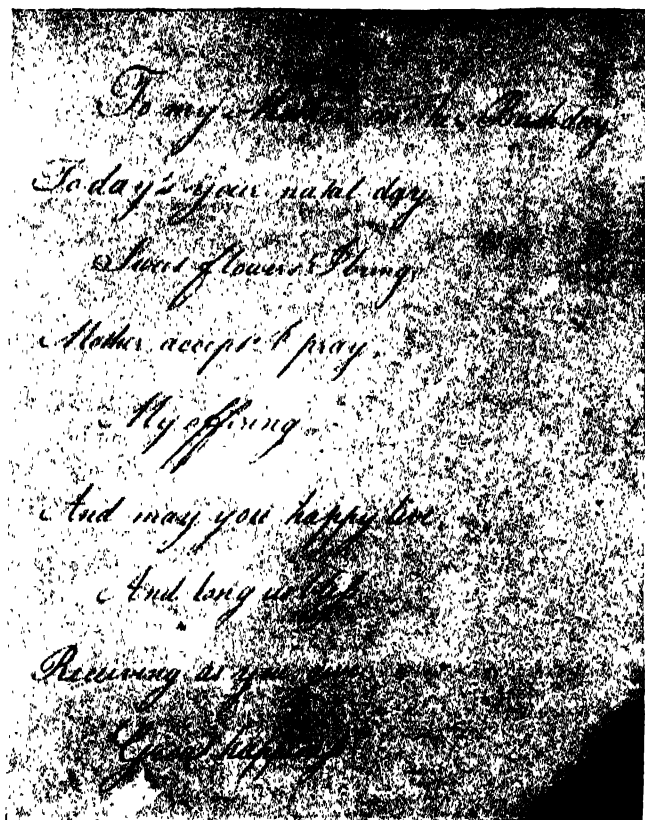 To my Mother on her Birthday
Today's your natal day
Sweet flowers I bring
Mother accept I pray,
My offering
And may you happy live,
And long us bless
Receiving as you
Great happiness